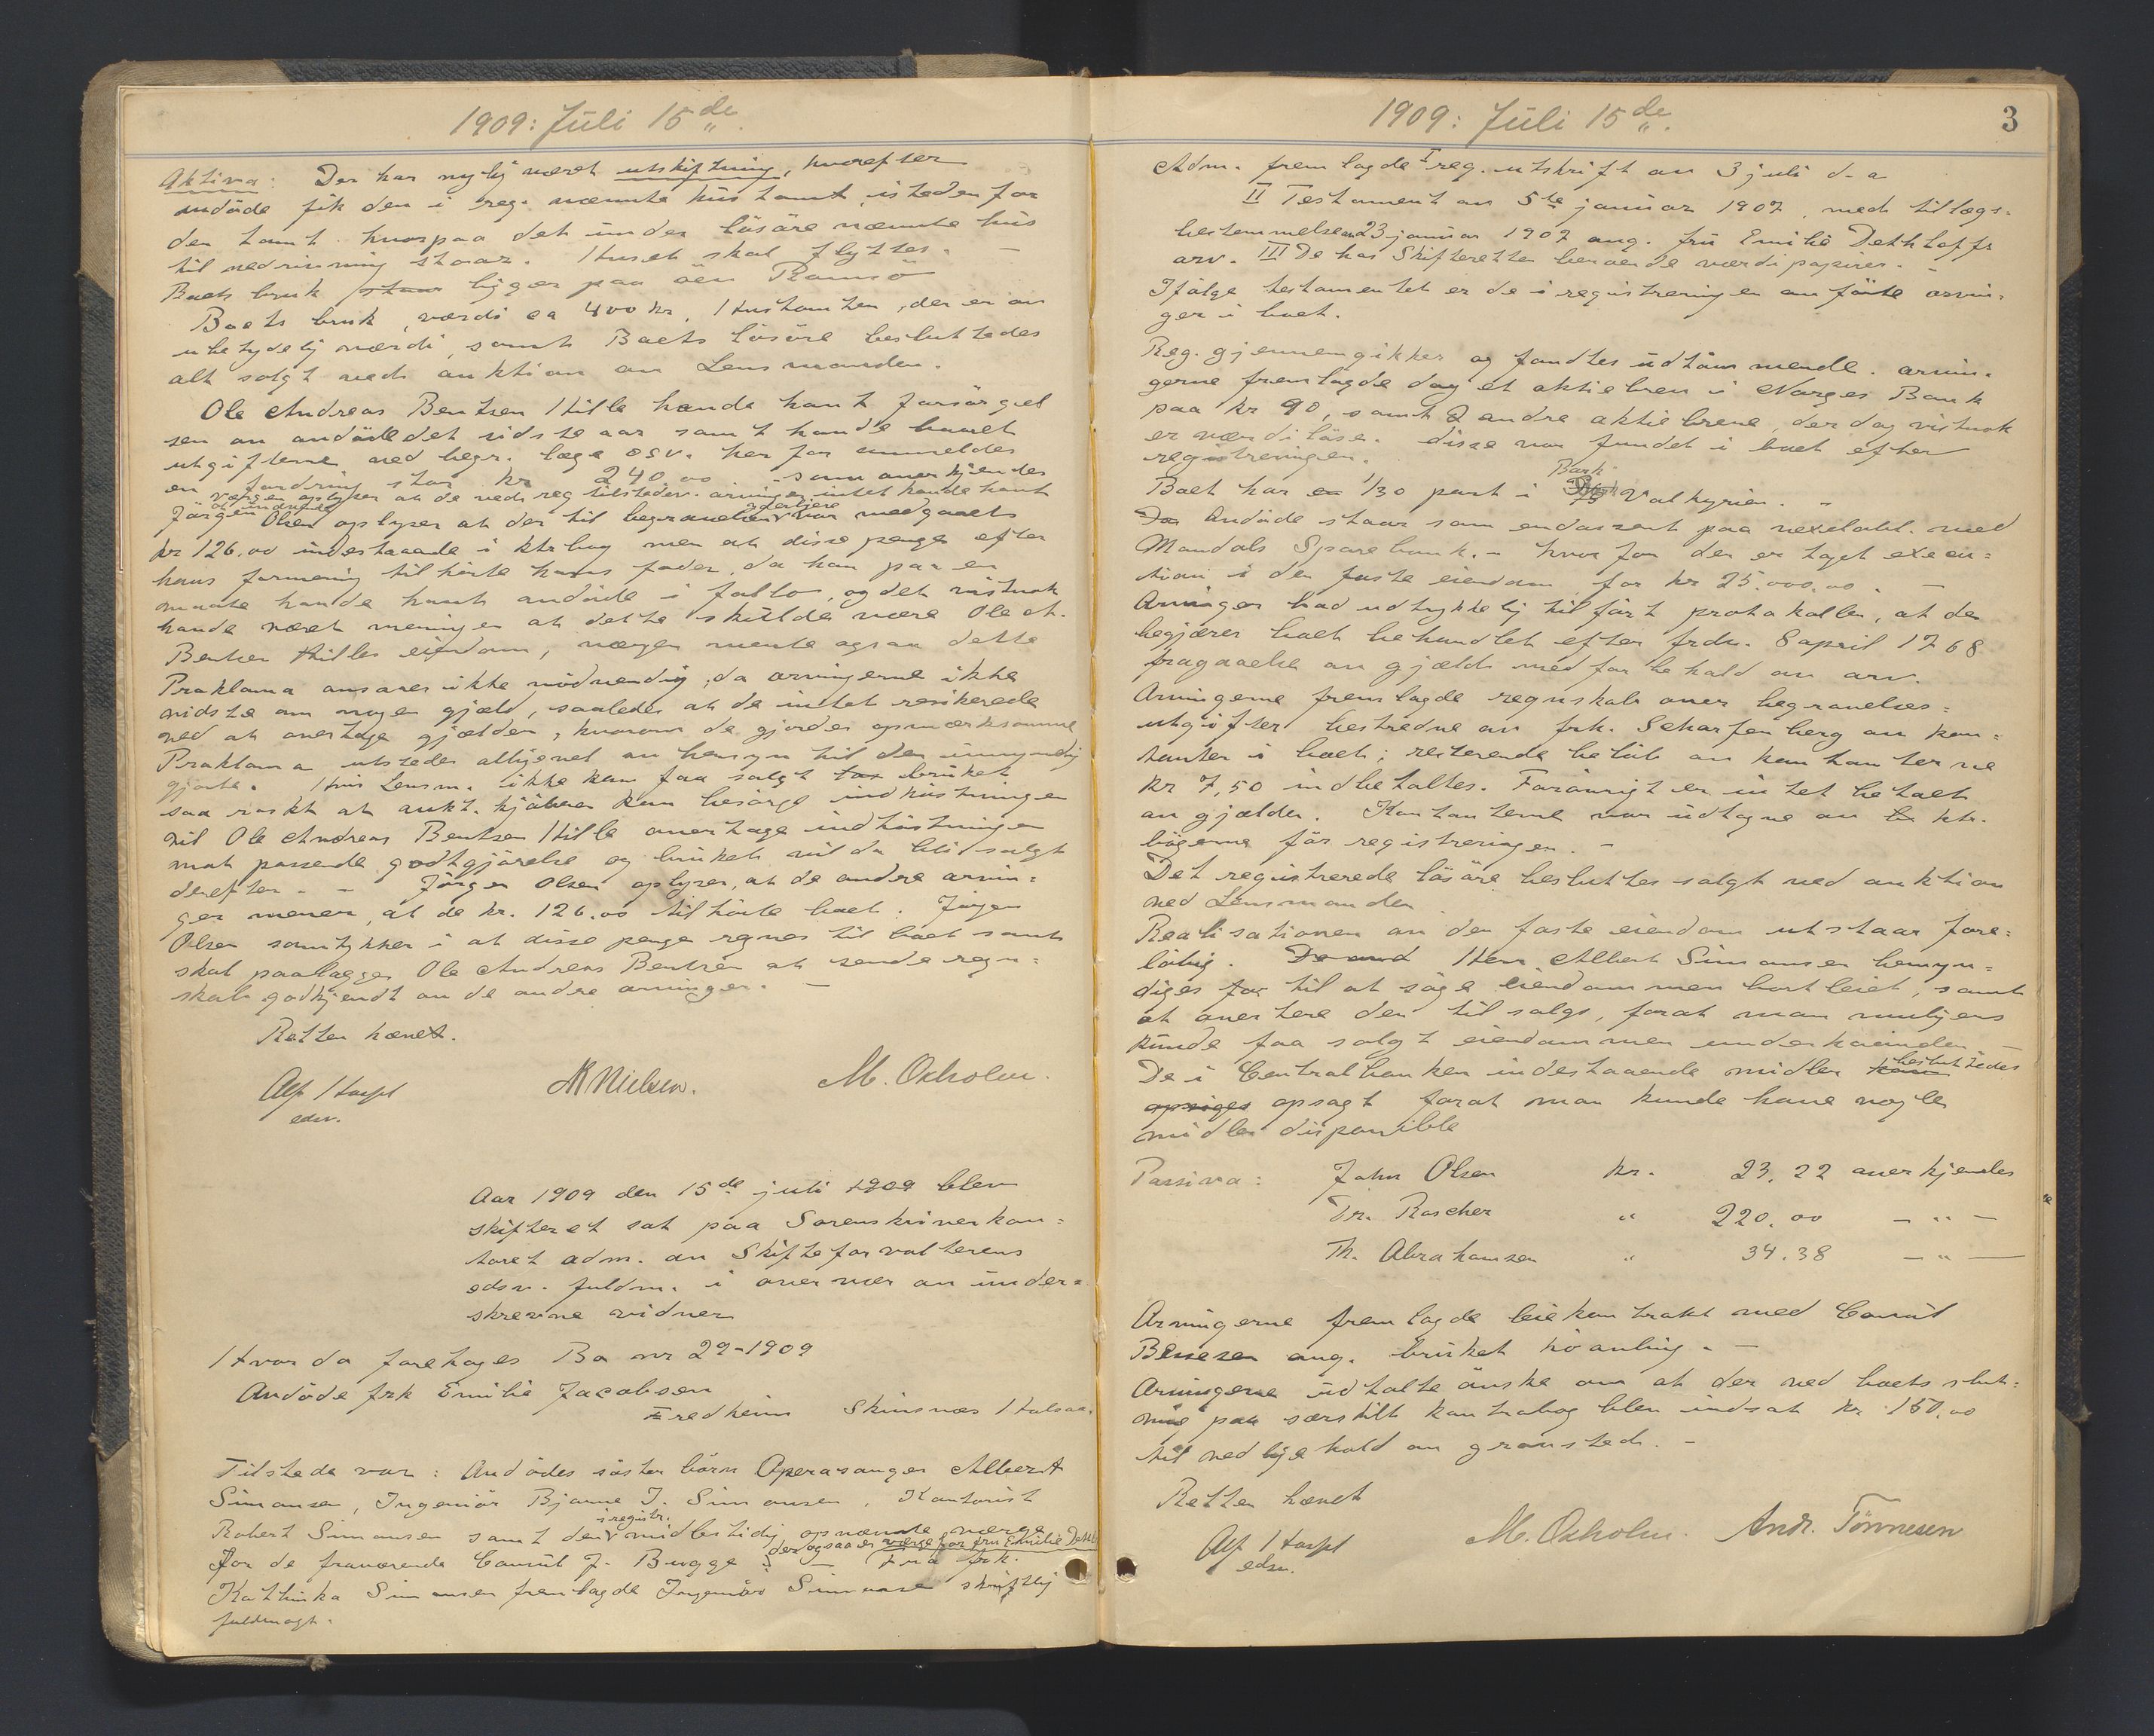 1909: Juli 15de.
Aktiva: Der har nylig været utskiftning, hvorefter
avdöde fik den i reg. nævnte hustomt, isteden for
den tomt hvorpaa det under lösöre nævnte hus
til nedrivning staar. Huset skal flyttes. —
Boets bruk staar ligger paa öen Ramsö
Boets bruk, værdi ca 400 kr, Hustomten, der er av
ubetydelig værdi, samt Boets lösöre besluttedes
alt solgt ved auktion av Lensmanden.
Ole Andreas Bentsen Hille havde havt forsörgel
sen av avdöde det sidste aar samt havde havet
utgifterne ved begr. læge osv. her for anmeldes
en fordring stor kr 240.00 som anerkjendes
værgen oplyser at de ved reg tilstedev. arvinger intet havde havt
at indvende
Jörgen Olsen oplyser at der til begravelsen yderligere var medgaaet
kr 126.00 indestaaende i ktrbog men at disse penge efter
hans formening tilhörte hans fader, da han paa en
maate havde havt avdöde i forlov, og det vistnok
havde været meningen at dette skulde være Ole A.
Bentsen Hilles eiendom, værgen mente ogsaa dette
Proklama ansaaes ikke nödvendig, da arvingerne ikke
vidste om nogen gjæld, saaledes at de intet resikerede
ved at overtage gjælden, hvorom de gjordes opmærksomme
Proklama utstedes alligevel av hensyn til den umyndig
gjorte. Hvis Lensm. ikke kan faa solgt bruket
saa raskt at aukt. kjöberen kan besörge indhöstningen
vil Ole Andreas Bentsen Hille overtage indhöstningen
mot passende godtgjörelse og bruket vil da bli solgt
derefter. — Jörgen Olsen oplyser, at de andre arvin-
ger mener, at de kr. 126.00 tilhörte boet. Jörgen
Olsen samtykker i at disse penge regnes til boet samt
skal paalægges Ole Andreas Bentsen at sende regn-
skab godkjendt av de andre arvinger. —
Retten hævet.
Alf Harpl
edsv.
M Nielsen.
M. Oxholm.
Aar 1909 den 15de juli 1909 blev
skifteret sat paa Sorenskriverkon-
toret adm. av Skifteforvalterens
edsv. fuldm. i overvær av under-
skrevne vidner
Hvorda foretoges Bo nr 29-1909
Avdöde frk Emilie Jacobsen
Fredheim Skinsnes Halsaa.
Tilstede var: Avdödes söster börn Operasanger Albert
Simonsen, Ingeniör Bjarne J. Simonsen, Kontorist
Robert Simonsen samt den i registr. midlertidig opnævnte værge
for de fraværende Consul J. Bugge der ogsaa er værge for fru Emilie Deth
Fra frk.
Kathinka Simonsen fremlagde Ingeniör Simonsen skriftlig
fuldmagt.
1909: Juli 15de.
3
Adm. fremlagde I reg. utskrift av 3 juli d. a
II Testament av 5te januar 1907, med tillægs-
bestemmelse av 23 januar 1907 ang. fru Emilie Dethloffs
arv. III De hos Skifteretten beroende værdipapirer. —
Ifölge testamentet er de i registreringen anförte arvin-
ger i boet.
Reg. gjennemgikkes og fandtes udtömmende. arvin-
gerne fremlagde dog et aktiebrev i Norges Bank
paa kr 90, samt 2 andre aktiebreve, der dog vistnok
er værdilöse. disse var fundet i boet efter
registreringen.
Boet har en 1/30 part i Bark Valkyrien. —
Da Avdöde staar som endossent paa vexelobl. med
Mandals Sparebank. — hvor for der er taget execu-
tion i den faste eiendom for kr 25.000.00. —
Arvinger bad udtrykkelig tilfört protokollen, at de
begjærer boet behandlet efter frdn. 8 april 1768
fragaaelse av gjæld med forbehold av arv.
Arvingerne fremlagde regnskab over begravelses-
utgifter bestredne av frk. Scharfenberg av kon-
tanter i boet; resterende belöb av kontanterne
kr 7,50 indbetaltes. Forövrigt er intet betalt
av gjælden. Kontanterne var udtagne av ktr.
bögerne för registreringen. —
Det registrerede lösöre besluttes solgt ved auktion
ved Lensmanden
Realisationen av den faste eiendom utstaar fore-
löbig. Herr Albert Simonsen bemyn-
diges for til at söge eiendommen bortleiet, samt
at avertere den til salgs, forat man muligens
kunde faa solgt eiendommen underhaanden —
De i Centralbanken indestaaende midler besluttedes
opsiges opsagt forat man kunde have nogle
midler disponible
Passiva: John Olsen kr. 23.22 anerkjendes
Dr. Roscher " 220.00 — " —
Th. Abrahamsen " 34.38 — " —
Arvingerne fremlagde leiekontrakt med Consul
Benesen ang. bruket höavling. —
Arvingerne udtalte önske om at der ved boets slut-
ning paa særskilt kontrabog blev indsat kr 150.00
til vedligehold av gravsted. —
Retten hævet
Alf Harpl
edsv.
M. Oxholm.
Andr. Tönnesen